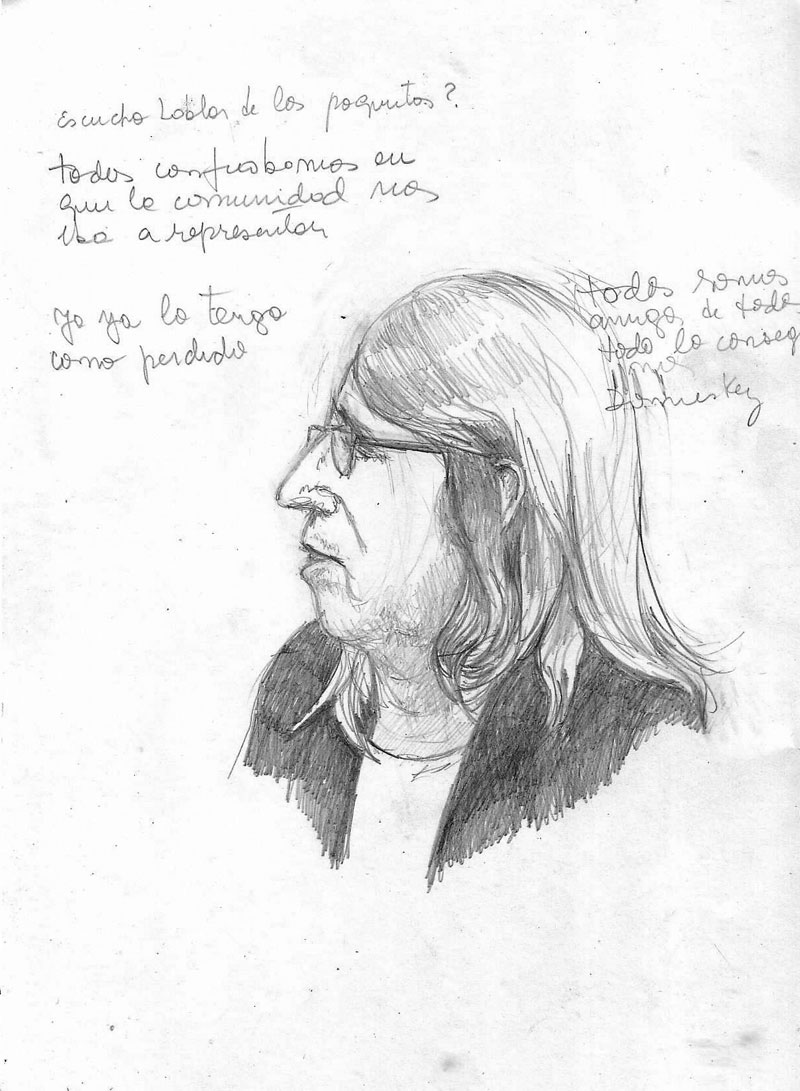 Escucho hablar de los paquitos?
todos confiabamos en
que la comunidad nos
iba a representar
Yo ya lo tengo
como perdido
todos somos
amigos de todo
todo lo conseg